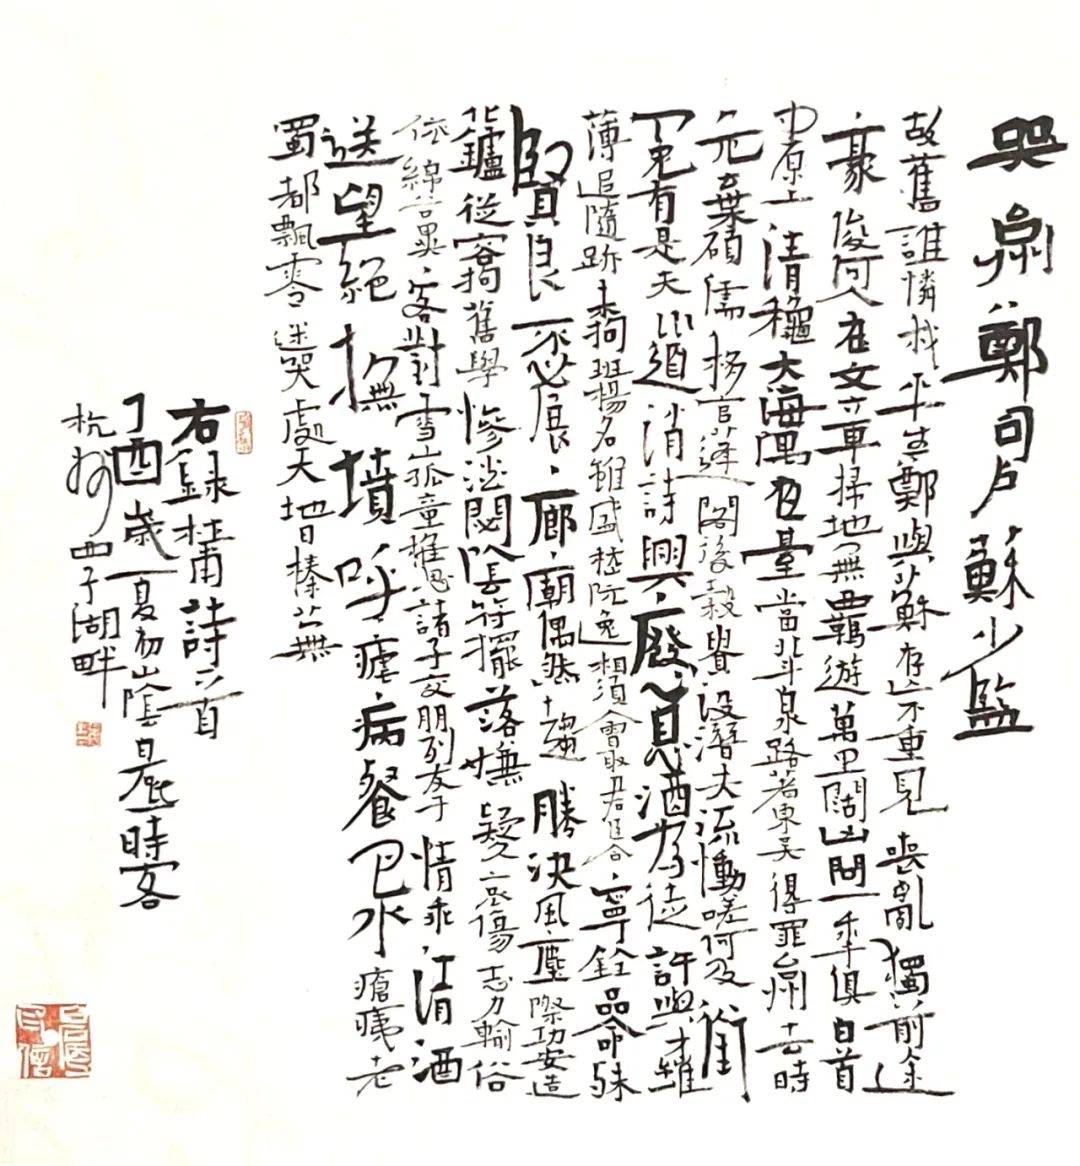 哭台州鄭司戶蘇少監
故舊誰憐我平生鄭與蘇存亡不重見喪亂獨前途
豪俊何人在文章掃地無羈遊萬里闊凶問一年俱白首
中原上清穐大海隅夜臺當北斗泉路著東吳得罪台州去時
危棄碩儒移官蓬閣後穀貴沒潛夫流慟嗟何及銜
冤有是夫道消詩興廢心息酒為徒許與才雖
薄追隨跡未拘班揚名雖盛嵇阮逸相須會取君臣合寧銓品命殊
賢良不必展廊廟偶然趨勝決風塵際功安造
化鑪從容拘舊學慘澹閟陰符擺落嫌疑久哀傷志力輸俗
依綿谷異客對雪山孤童稚思諸子交朋列友于情乖清酒
送望絕撫墳呼瘧病餐巴水瘡痍老
蜀都飄零迷哭處天地日榛蕪
右録杜甫詩一首
丁酉歲夏初山陰時客
杭州西子湖畔